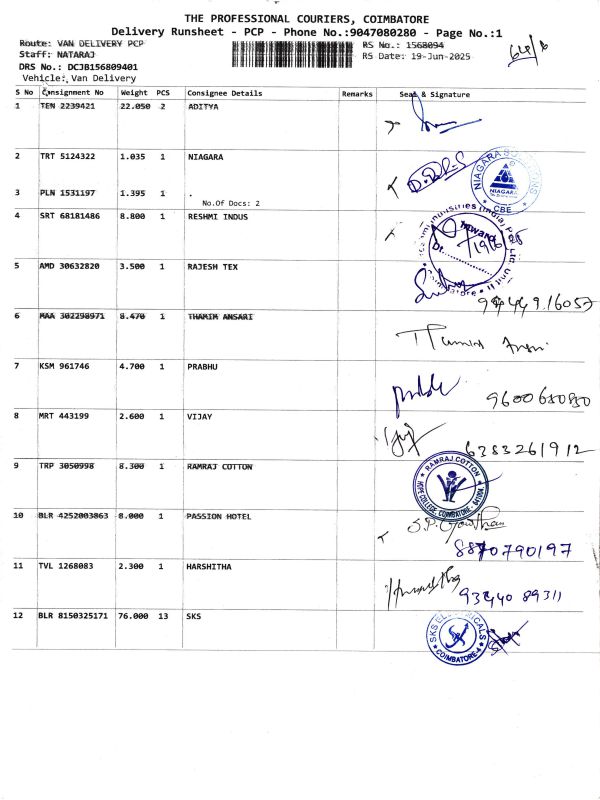 THE PROFESSIONAL COURIERS, COIMBATORE
Delivery Runsheet - PCP - Phone No.:9047080280 - Page No.:1
Route: VAN DELIVERY PCP
RS No.: 1568094
Staff: NATARAJ
RS Date: 19-Jun-2025
DRS No.: DCJB156809401
Vehicle: Van Delivery
S No Consignment No Weight PCS Consignee Details Remarks Seal & Signature
1 TEN 2239421 22.050 2 ADITYA
2 TRT 5124322 1.035 1 NIAGARA
NIAGARA
CBE
3 PLN 1531197 1.395 1 .
No.Of Docs: 2
4 SRT 68181486 8.800 1 RESHMI INDUS
Inward
5 AMD 30632820 3.500 1 RAJESH TEX
6 MAA 302298971 8.470 1 THAMIM ANSARI
7 KSM 961746 4.700 1 PRABHU
9600680980
8 MRT 443199 2.600 1 VIJAY
6383261912
9 TRP 3050998 8.300 1 RAMRAJ COTTON
RAMRAJ COTTON
HOPE COLLEGE, COIMBATORE - 641004
10 BLR 4252003863 8.000 1 PASSION HOTEL
8870790197
11 TVL 1268083 2.300 1 HARSHITHA
12 BLR 8150325171 76.000 13 SKS
SKS ELECTRICALS
COIMBATORE-4